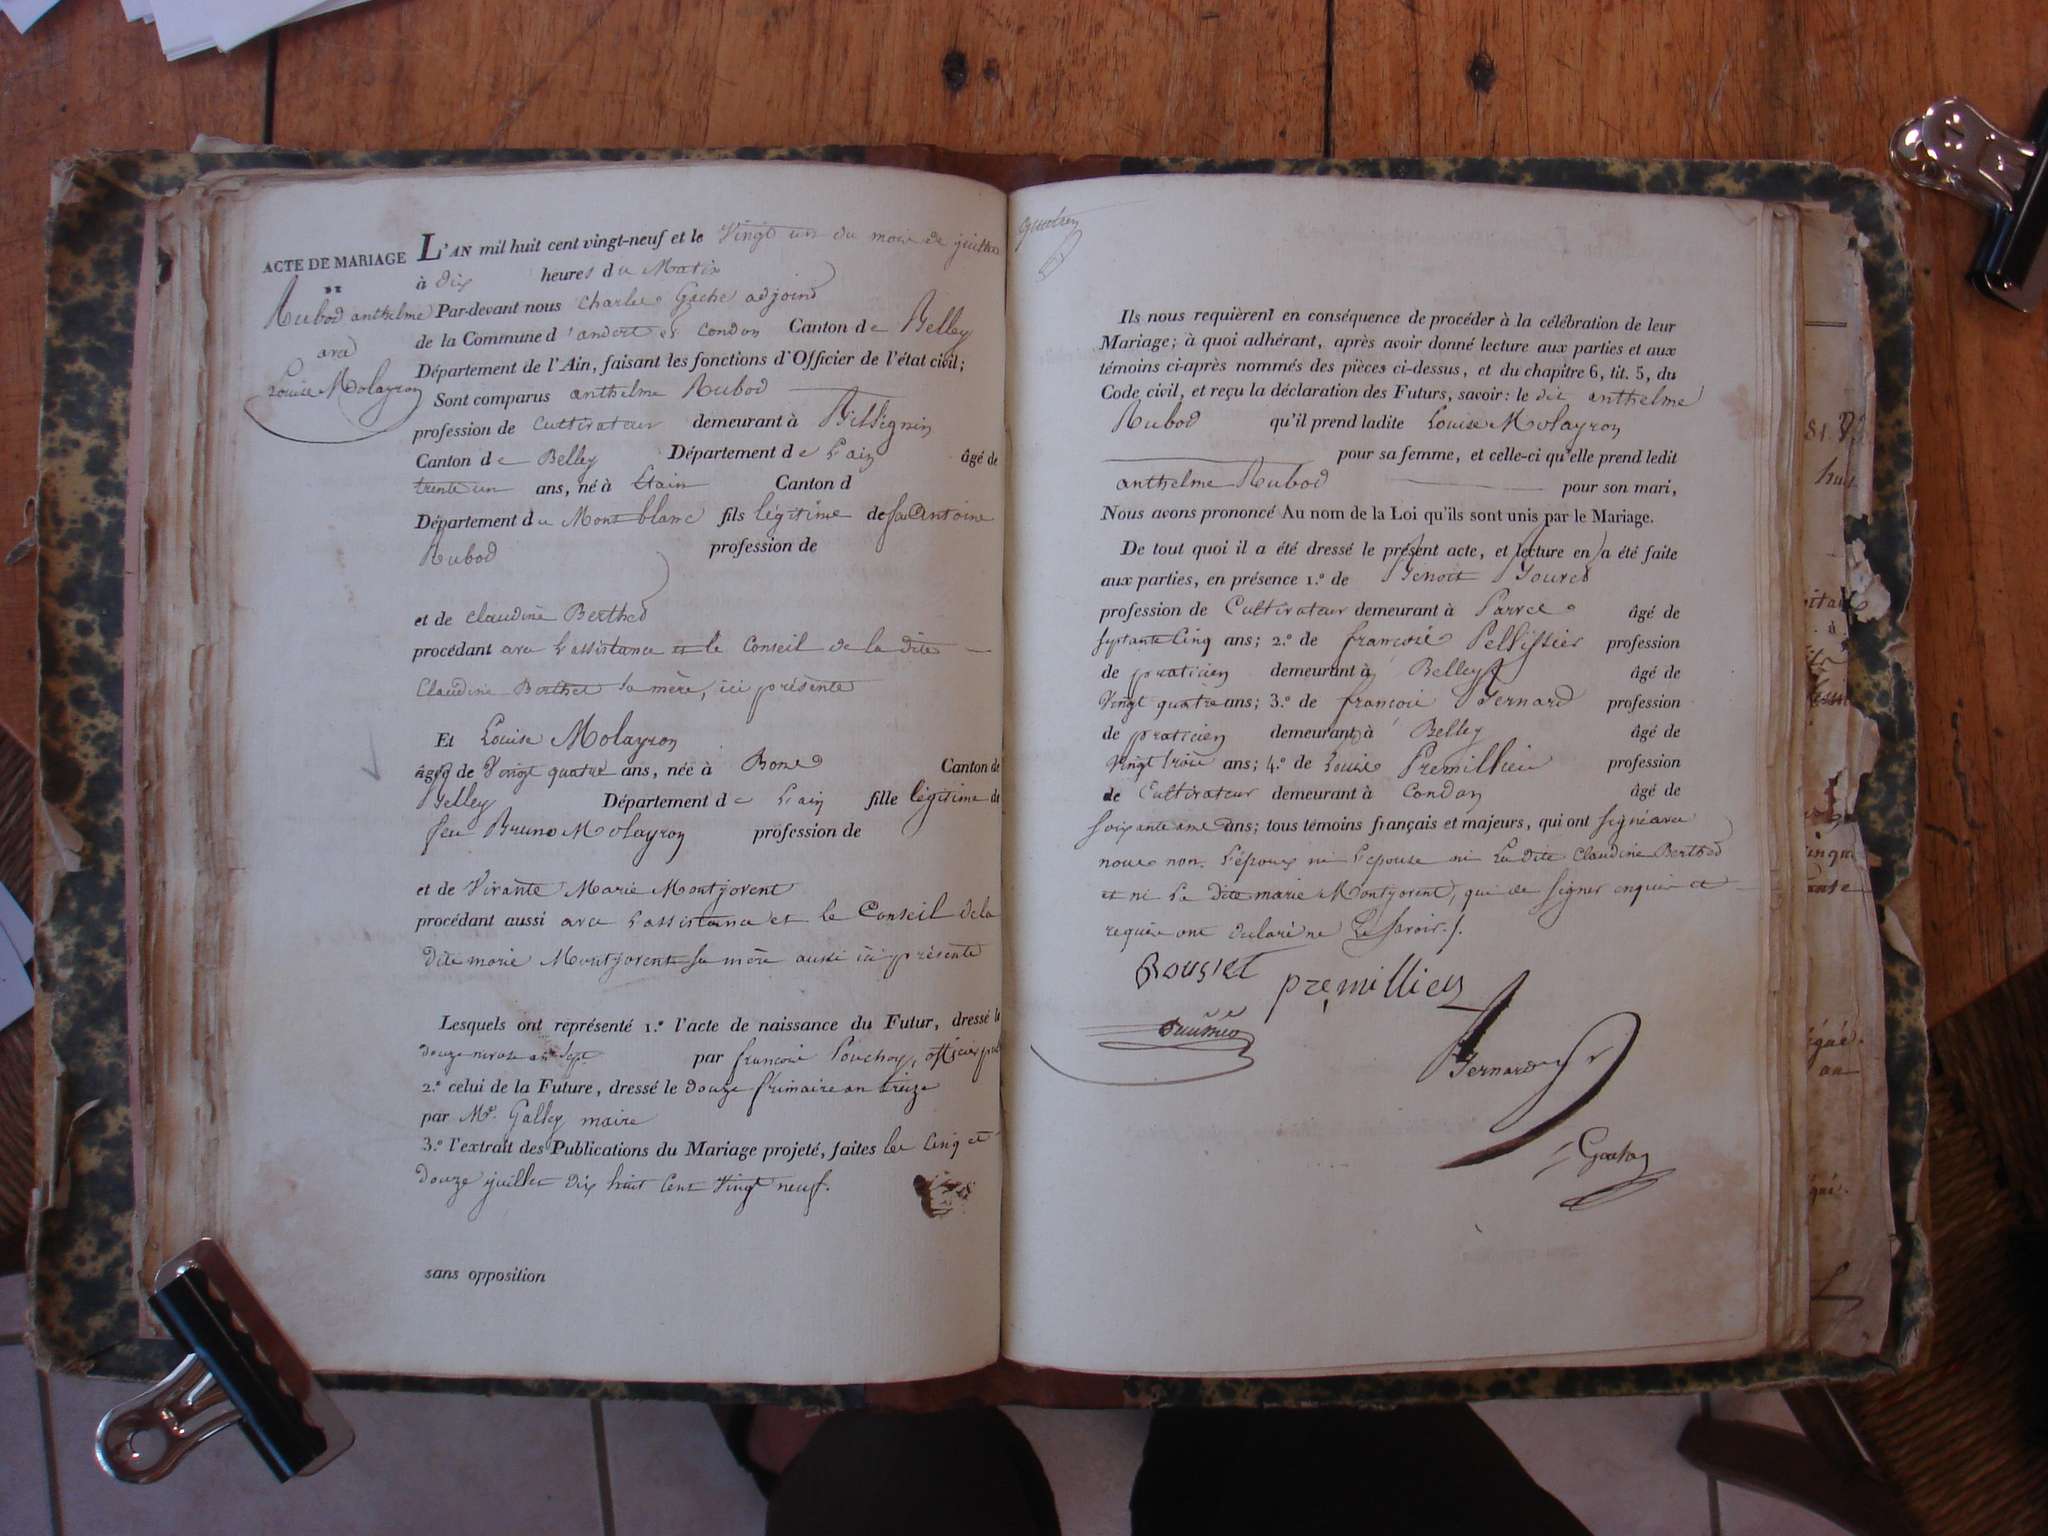 ACTE DE MARIAGE
Rubod anthelme
avec
Louise Molayron
L'AN mil huit cent vingt-neuf et le Vingt un du mois de juillet
à dix heures du Matin
Par-devant nous Charles Gache adjoind
de la Commune d'andert et Condon Canton de Belley
Département de l'Ain, faisant les fonctions d'Officier de l'état civil;
Sont comparus anthelme Rubod
profession de Cultivateur demeurant à Billignin
Canton de Belley Département de L'ain âgé de
trente un ans, né à Canton d
Département du Mont blanc fils légitime de feu Antoine
Rubod profession de
et de Claudine Berthed
procédant avec L'assistance et le Conseil de la dite
Claudine Berthet sa mère, ici présente
Et Louise Molayron
âgée de Vingt quatre ans, née à Canton de
Belley Département de L'ain fille légitime de
feu Bruno Molayron profession de
et de Vivante Marie Montjovent
procédant aussi avec L'assistance et le Conseil de la
dite marie Montjovent sa mère aussi ici présente
Lesquels ont représenté 1.º l'acte de naissance du Futur, dressé le
douze nivose an Sept par francois officier
2.º celui de la Future, dressé le douze frimaire an treize
par Mr. Galley maire
3.º l'extrait des Publications du Mariage projeté, faites les Cinq et
douze juillet dix huit Cent Vingt neuf.
sans opposition
Ils nous requièrent en conséquence de procéder à la célébration de leur
Mariage; à quoi adhérant, après avoir donné lecture aux parties et aux
témoins ci-après nommés des pièces ci-dessus, et du chapitre 6, tit. 5, du
Code civil, et reçu la déclaration des Futurs, savoir: le dit anthelme
Rubod qu'il prend ladite Louise Molayron
pour sa femme, et celle-ci qu'elle prend ledit
anthelme Rubod pour son mari,
Nous avons prononcé Au nom de la Loi qu'ils sont unis par le Mariage.
De tout quoi il a été dressé le présent acte, et lecture en a été faite
aux parties, en présence 1.º de Benoit
profession de Cultivateur demeurant à âgé de
septante Cinq ans; 2.º de françois Pellissier profession
de praticien demeurant à Belley âgé de
Vingt quatre ans; 3.º de françois Bernard profession
de praticien demeurant à Belley âgé de
Vingt trois ans; 4.º de Louis Premillieu profession
de Cultivateur demeurant à Condon âgé de
soixante ans; tous témoins français et majeurs, qui ont signé avec
nous non L'époux ni L'epouse ni La dite Claudine Berthed
et ni La dite marie Montjovent, qui de signer enquis et
requis ont déclaré ne Le savoir./.
premillieu
Bernard